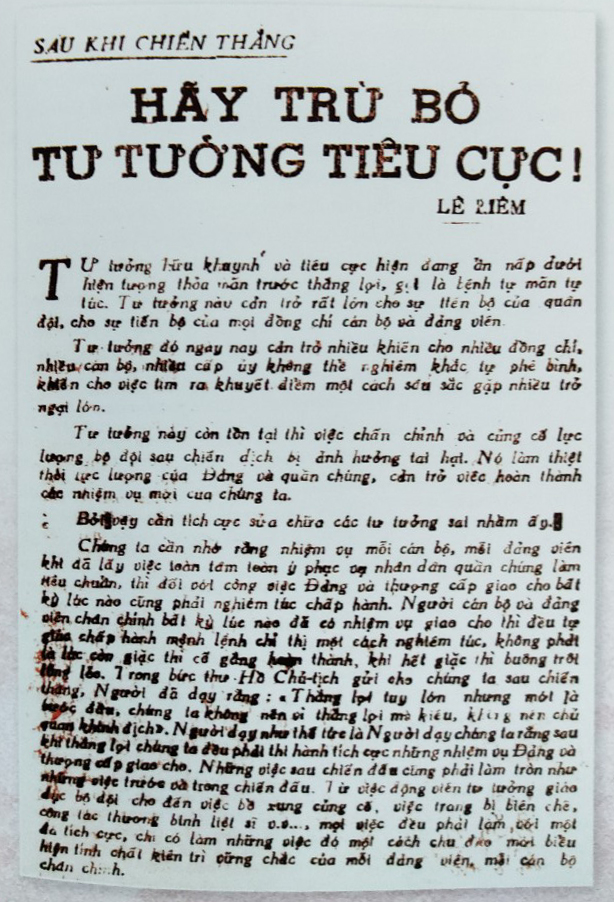 SAU KHI CHIẾN THẮNG
HÃY TRỪ BỎ
TƯ TƯỞNG TIÊU CỰC!
LÊ LIÊM
TƯ tưởng hữu khuynh và tiêu cực hiện đang ẩn nấp dưới
hiện tượng thỏa mãn trước thắng lợi, gọi là bệnh tự mãn tự
túc. Tư tưởng này cản trở rất lớn cho sự tiến bộ của quân
đội, cho sự tiến bộ của mọi đồng chí cán bộ và đảng viên.
Tư tưởng đó ngày nay cản trở nhiều khiến cho nhiều đồng chí,
nhiều cán bộ, nhiều cấp ủy không thể nghiêm khắc tự phê bình,
khiến cho việc tìm ra khuyết điểm một cách sâu sắc gặp nhiều trở
ngại lớn.
Tư tưởng này còn tồn tại thì việc chấn chỉnh và củng cố lực
lượng bộ đội sau chiến dịch bị ảnh hưởng tai hại. Nó làm thiệt
thòi lực lượng của Đảng và quần chúng, cản trở việc hoàn thành
các nhiệm vụ mới của chúng ta.
Bởi vậy cần tích cực sửa chữa các tư tưởng sai nhầm ấy.
Chúng ta cần nhớ rằng nhiệm vụ mỗi cán bộ, mỗi đảng viên
khi đã lấy việc toàn tâm toàn ý phục vụ nhân dân quần chúng làm
tiêu chuẩn, thì đối với công việc Đảng và thượng cấp giao cho bất
kỳ lúc nào cũng phải nghiêm túc chấp hành. Người cán bộ và đảng
viên chân chính bất kỳ lúc nào đã có nhiệm vụ giao cho thì đều tự
giác chấp hành mệnh lệnh chỉ thị một cách nghiêm túc, không phải
là lúc còn giặc thì cố gắng hoàn thành, khi hết giặc thì buông trôi
lỏng lẻo. Trong bức thư Hồ Chủ-tịch gửi cho chúng ta sau chiến
thắng, Người đã dạy rằng: «Thắng lợi tuy lớn nhưng mới là
bước đầu, chúng ta không nên vì thắng lợi mà kiêu, không nên chủ
quan khinh địch». Người dạy như thế tức là Người dạy chúng ta rằng sau
khi thắng lợi chúng ta đều phải thi hành tích cực những nhiệm vụ Đảng và
thượng cấp giao cho. Những việc sau chiến đấu cũng phải làm tròn như
những việc trước và trong chiến đấu. Từ việc động viên tư tưởng giáo
dục bộ đội cho đến việc bổ xung củng cố, việc trang bị biên chế,
công tác thương binh liệt sĩ v.v..., mọi việc đều phải làm với một
đà tích cực, chỉ có làm những việc đó một cách chu đáo mới biểu
hiện tính chất kiên trì vững chắc của mỗi đảng viên, mỗi cán bộ
chân chính.